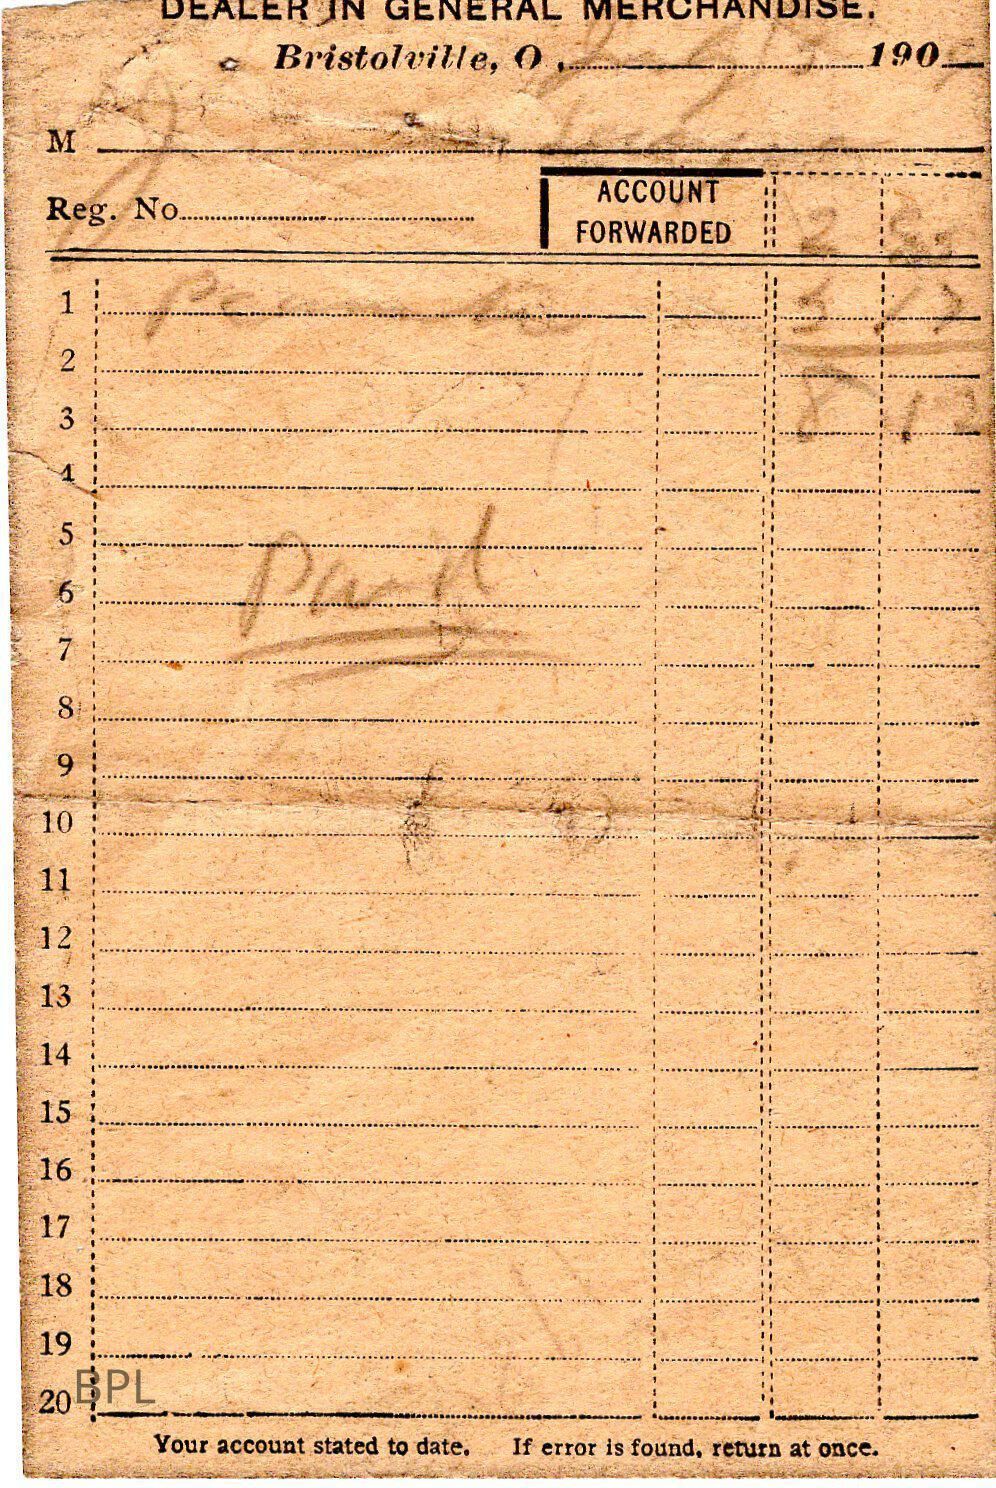 DEALER IN GENERAL MERCHANDISE.
Bristolville, O., 190
M
Reg. No. ACCOUNT FORWARDED 2
1 3 17
2
3 8 12
4
5
6 Paid
7
8
9
10
11
12
13
14
15
16
17
18
19
BPL
20
Your account stated to date. If error is found, return at once.